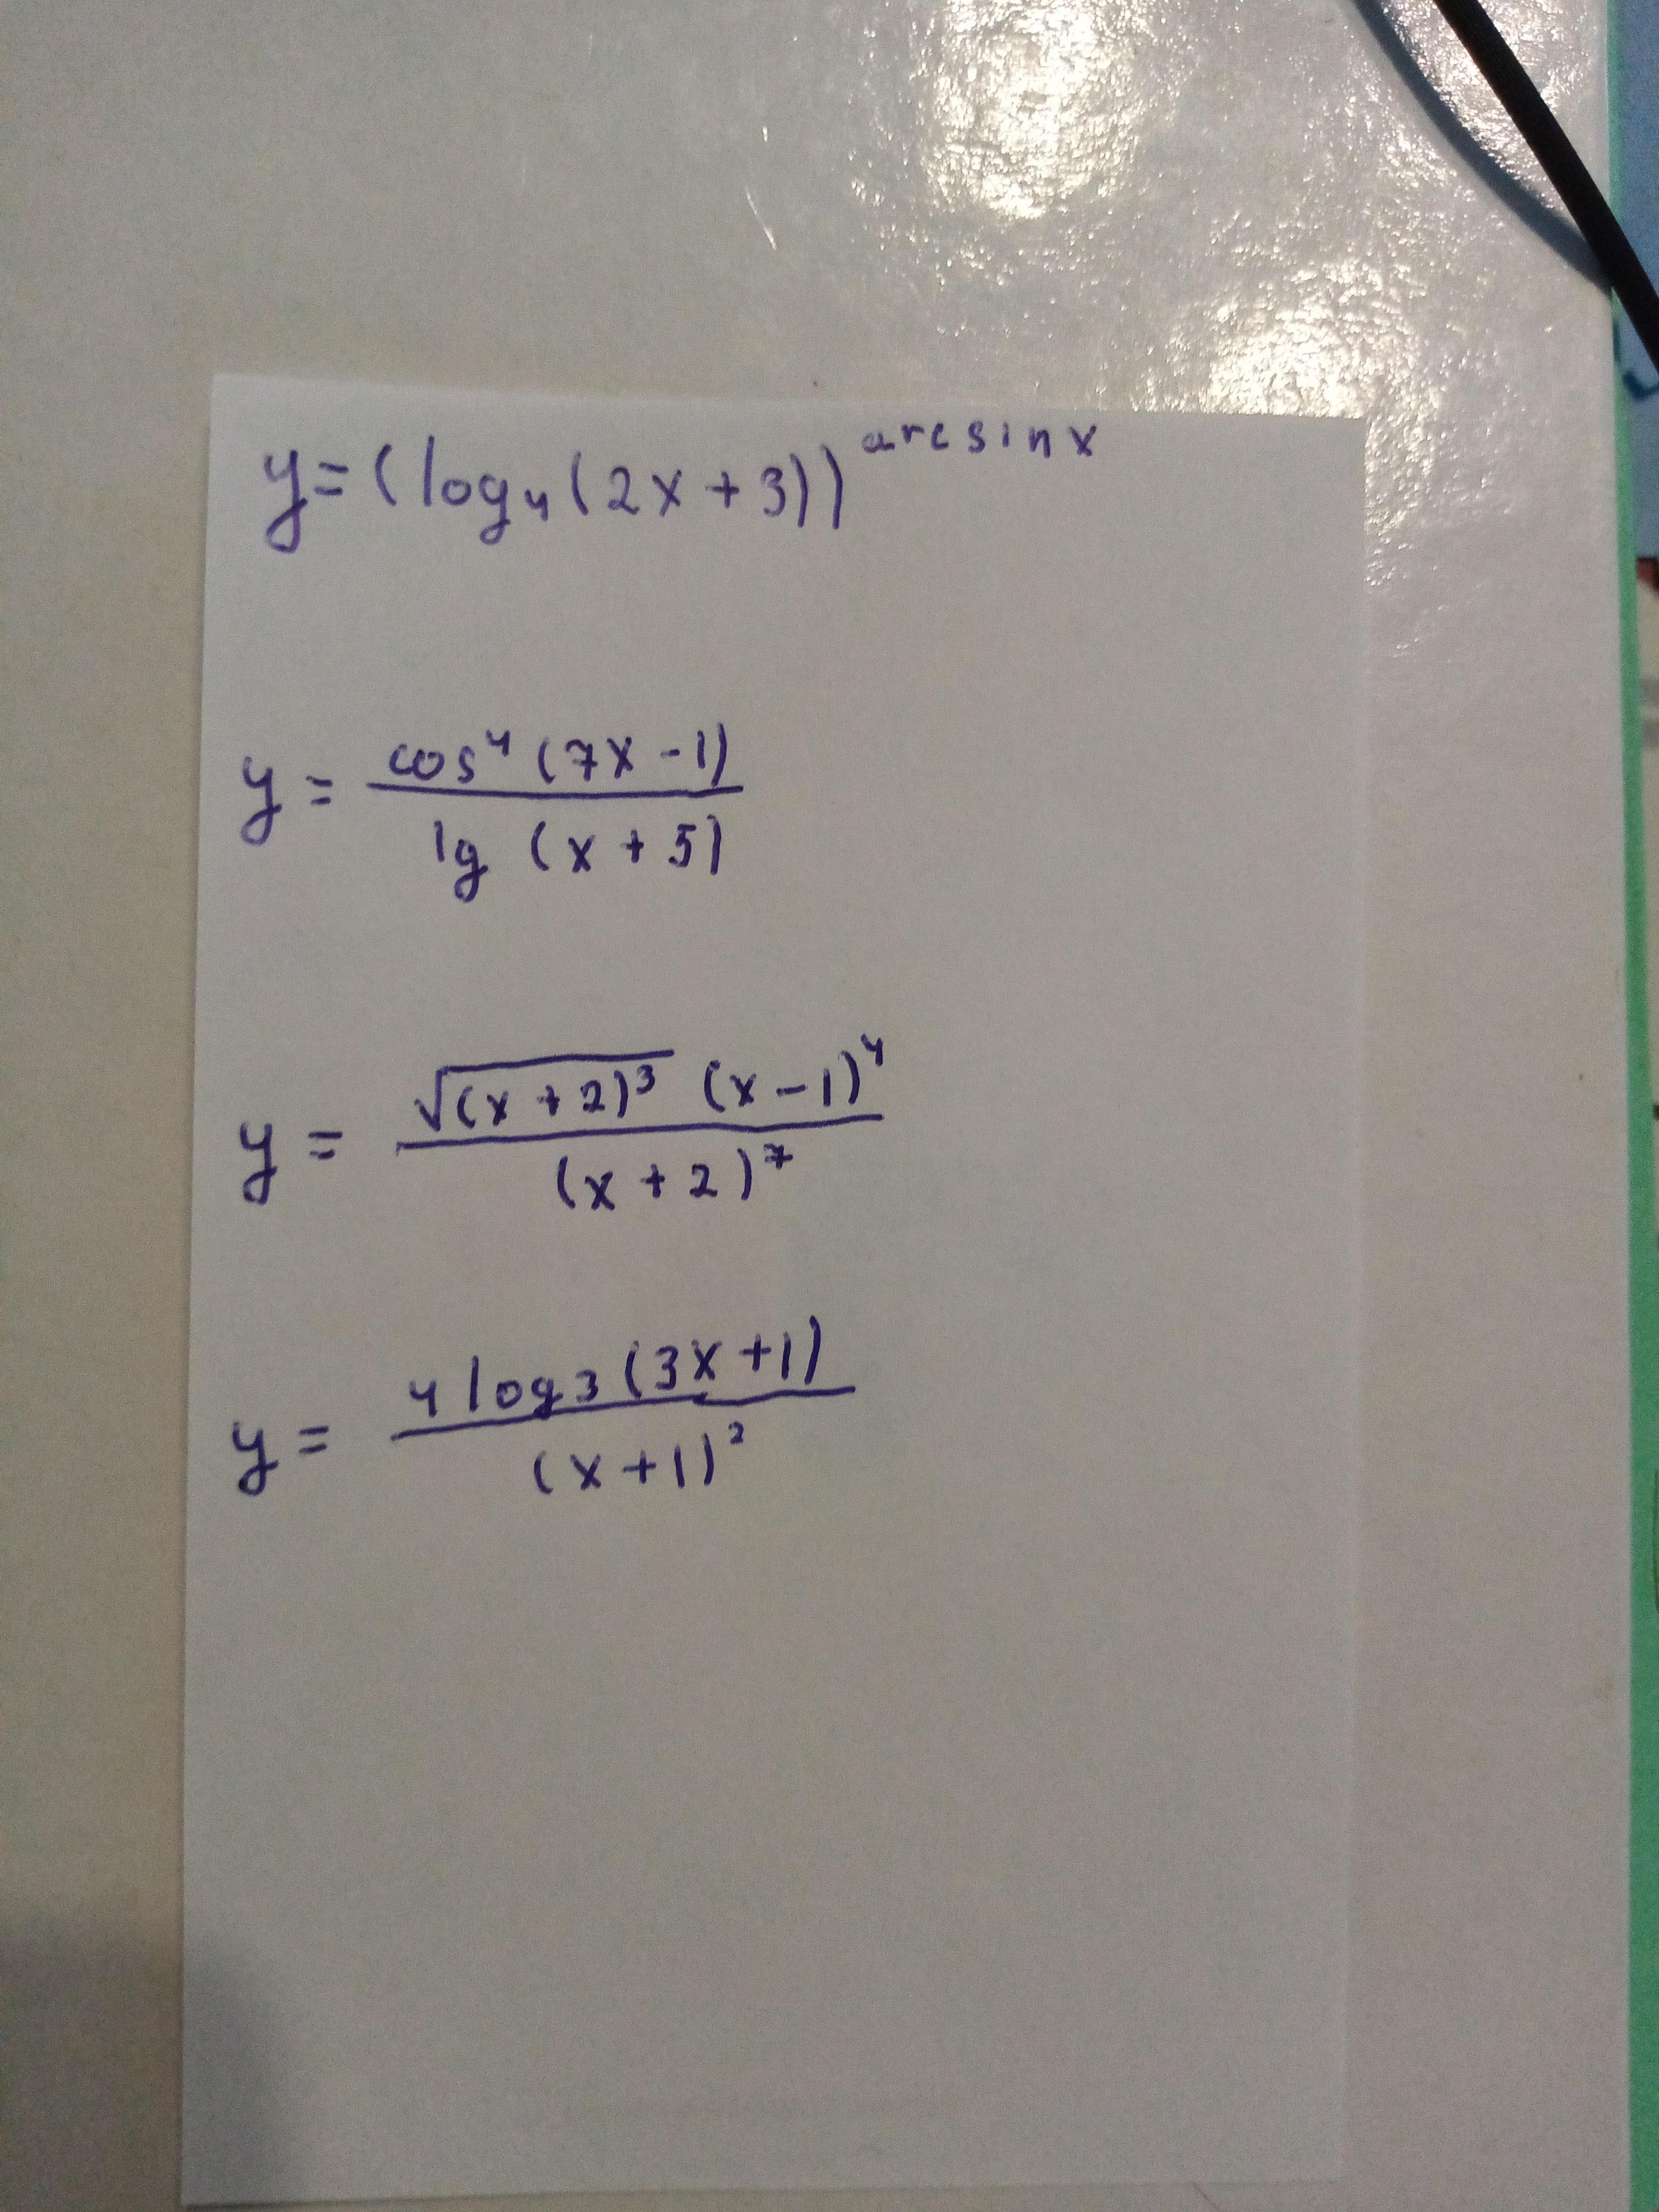 y = (log₄(2x + 3))^arcsin x
y = cos⁴(7x - 1) / lg (x + 5)
y = √((x + 2)³) (x - 1)⁴ / (x + 2)⁷
y = 4 log₃(3x + 1) / (x + 1)²